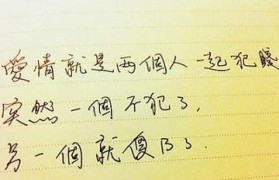 愛情就是兩個人一起犯賤
突然一個不犯了,
另一個就傻B了.